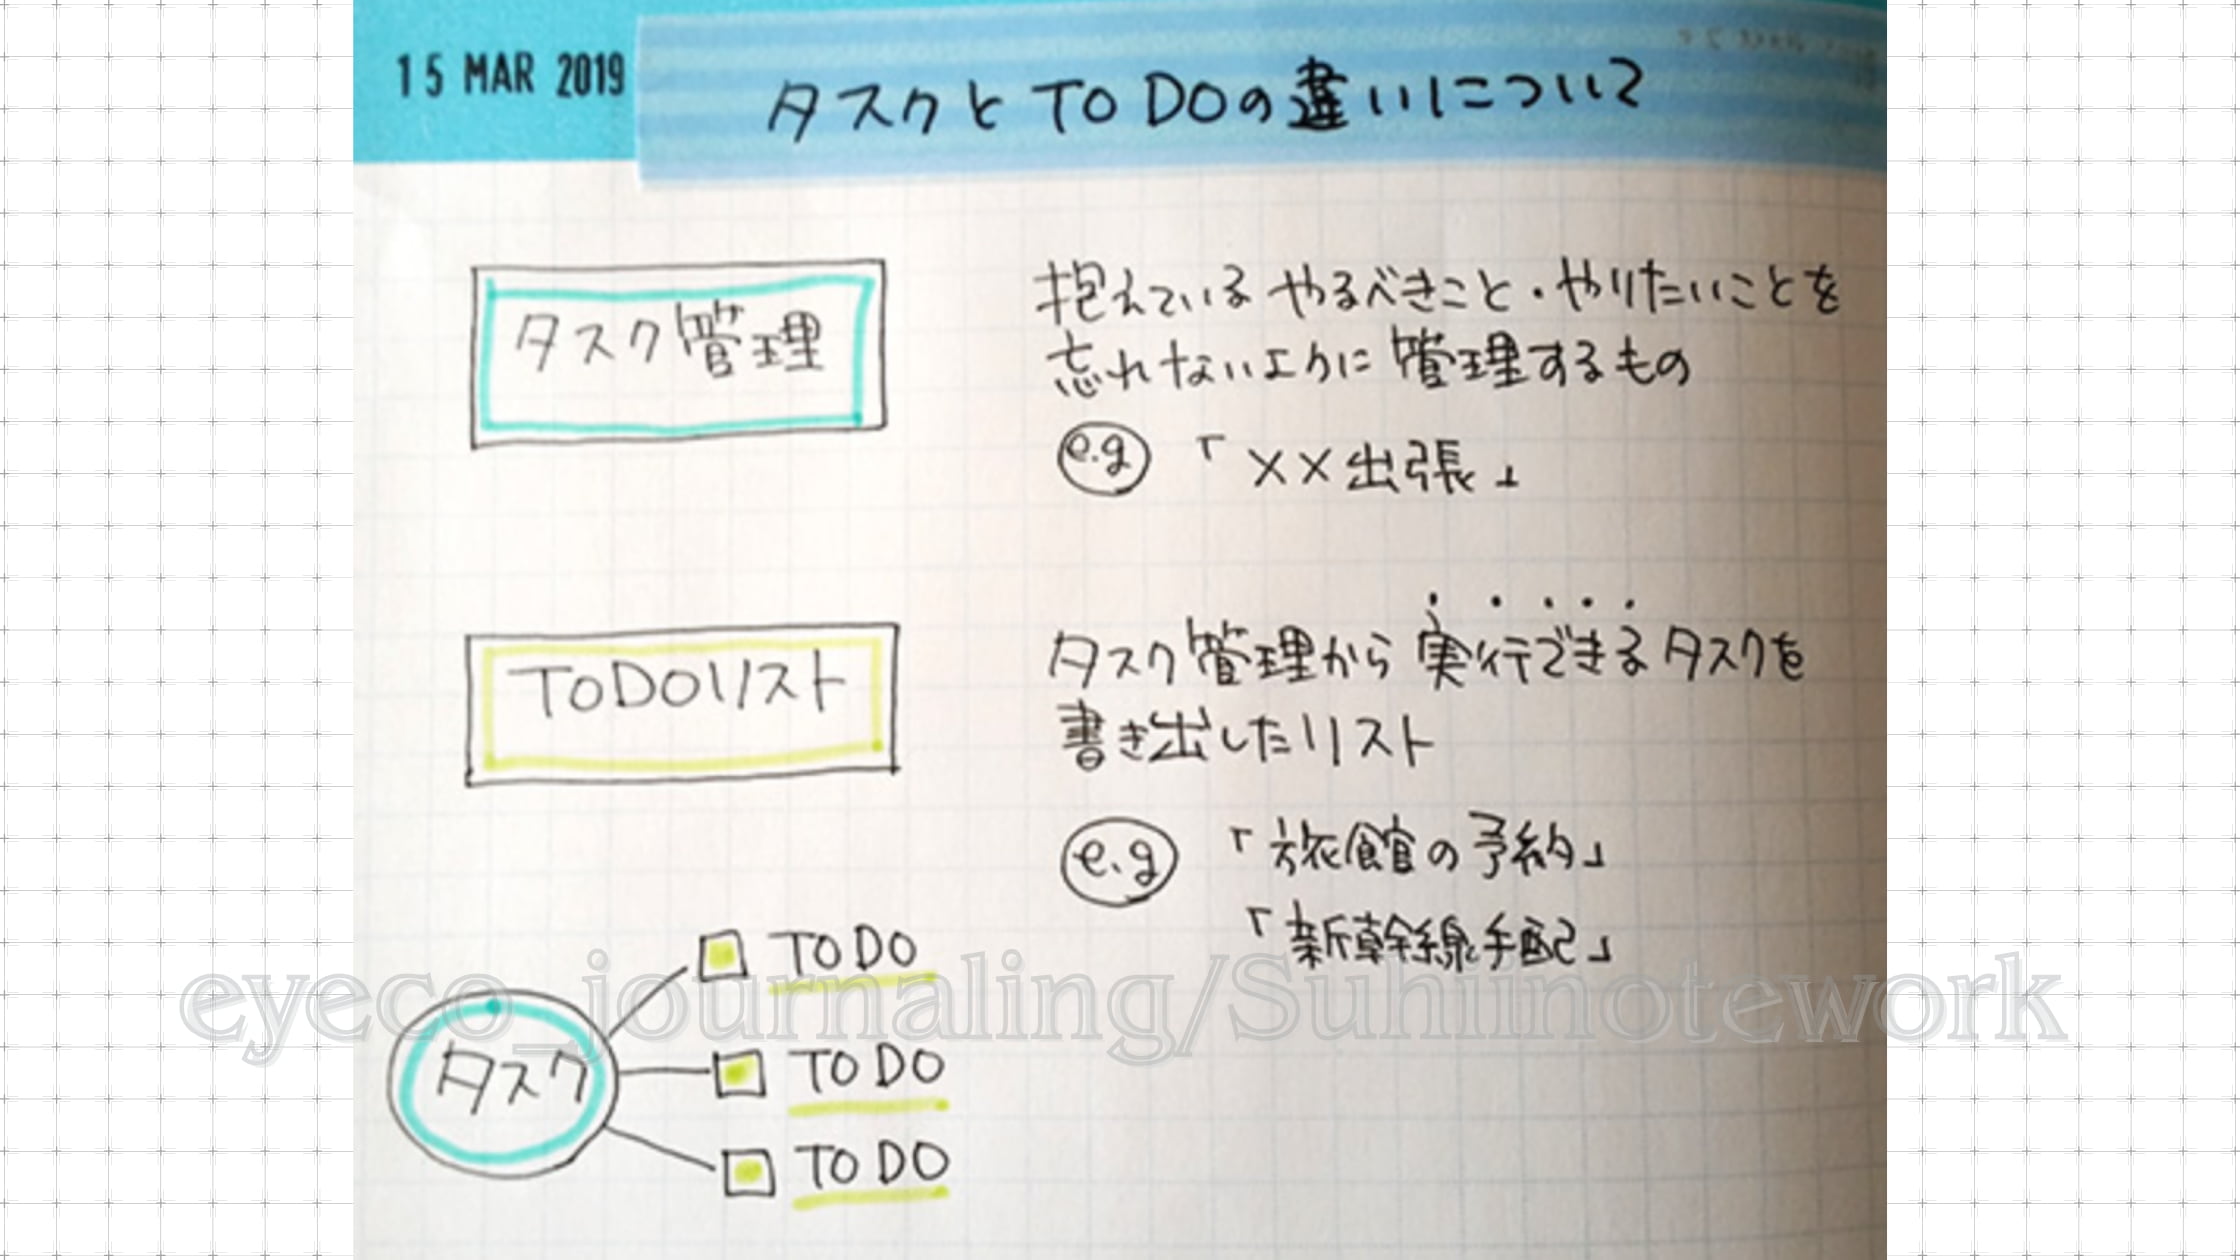 15 MAR 2019
タスクとTO DOの違いについて
タスク管理
抱えているやるべきこと・やりたいことを
忘れないように管理するもの
e.g 「××出張」
TODOリスト
タスク管理から実行できるタスクを
書き出したリスト
e.g 「旅館の予約」
「新幹線手配」
タスク
TO DO
TO DO
TO DO
eyeco_journaling/Suhiinotework